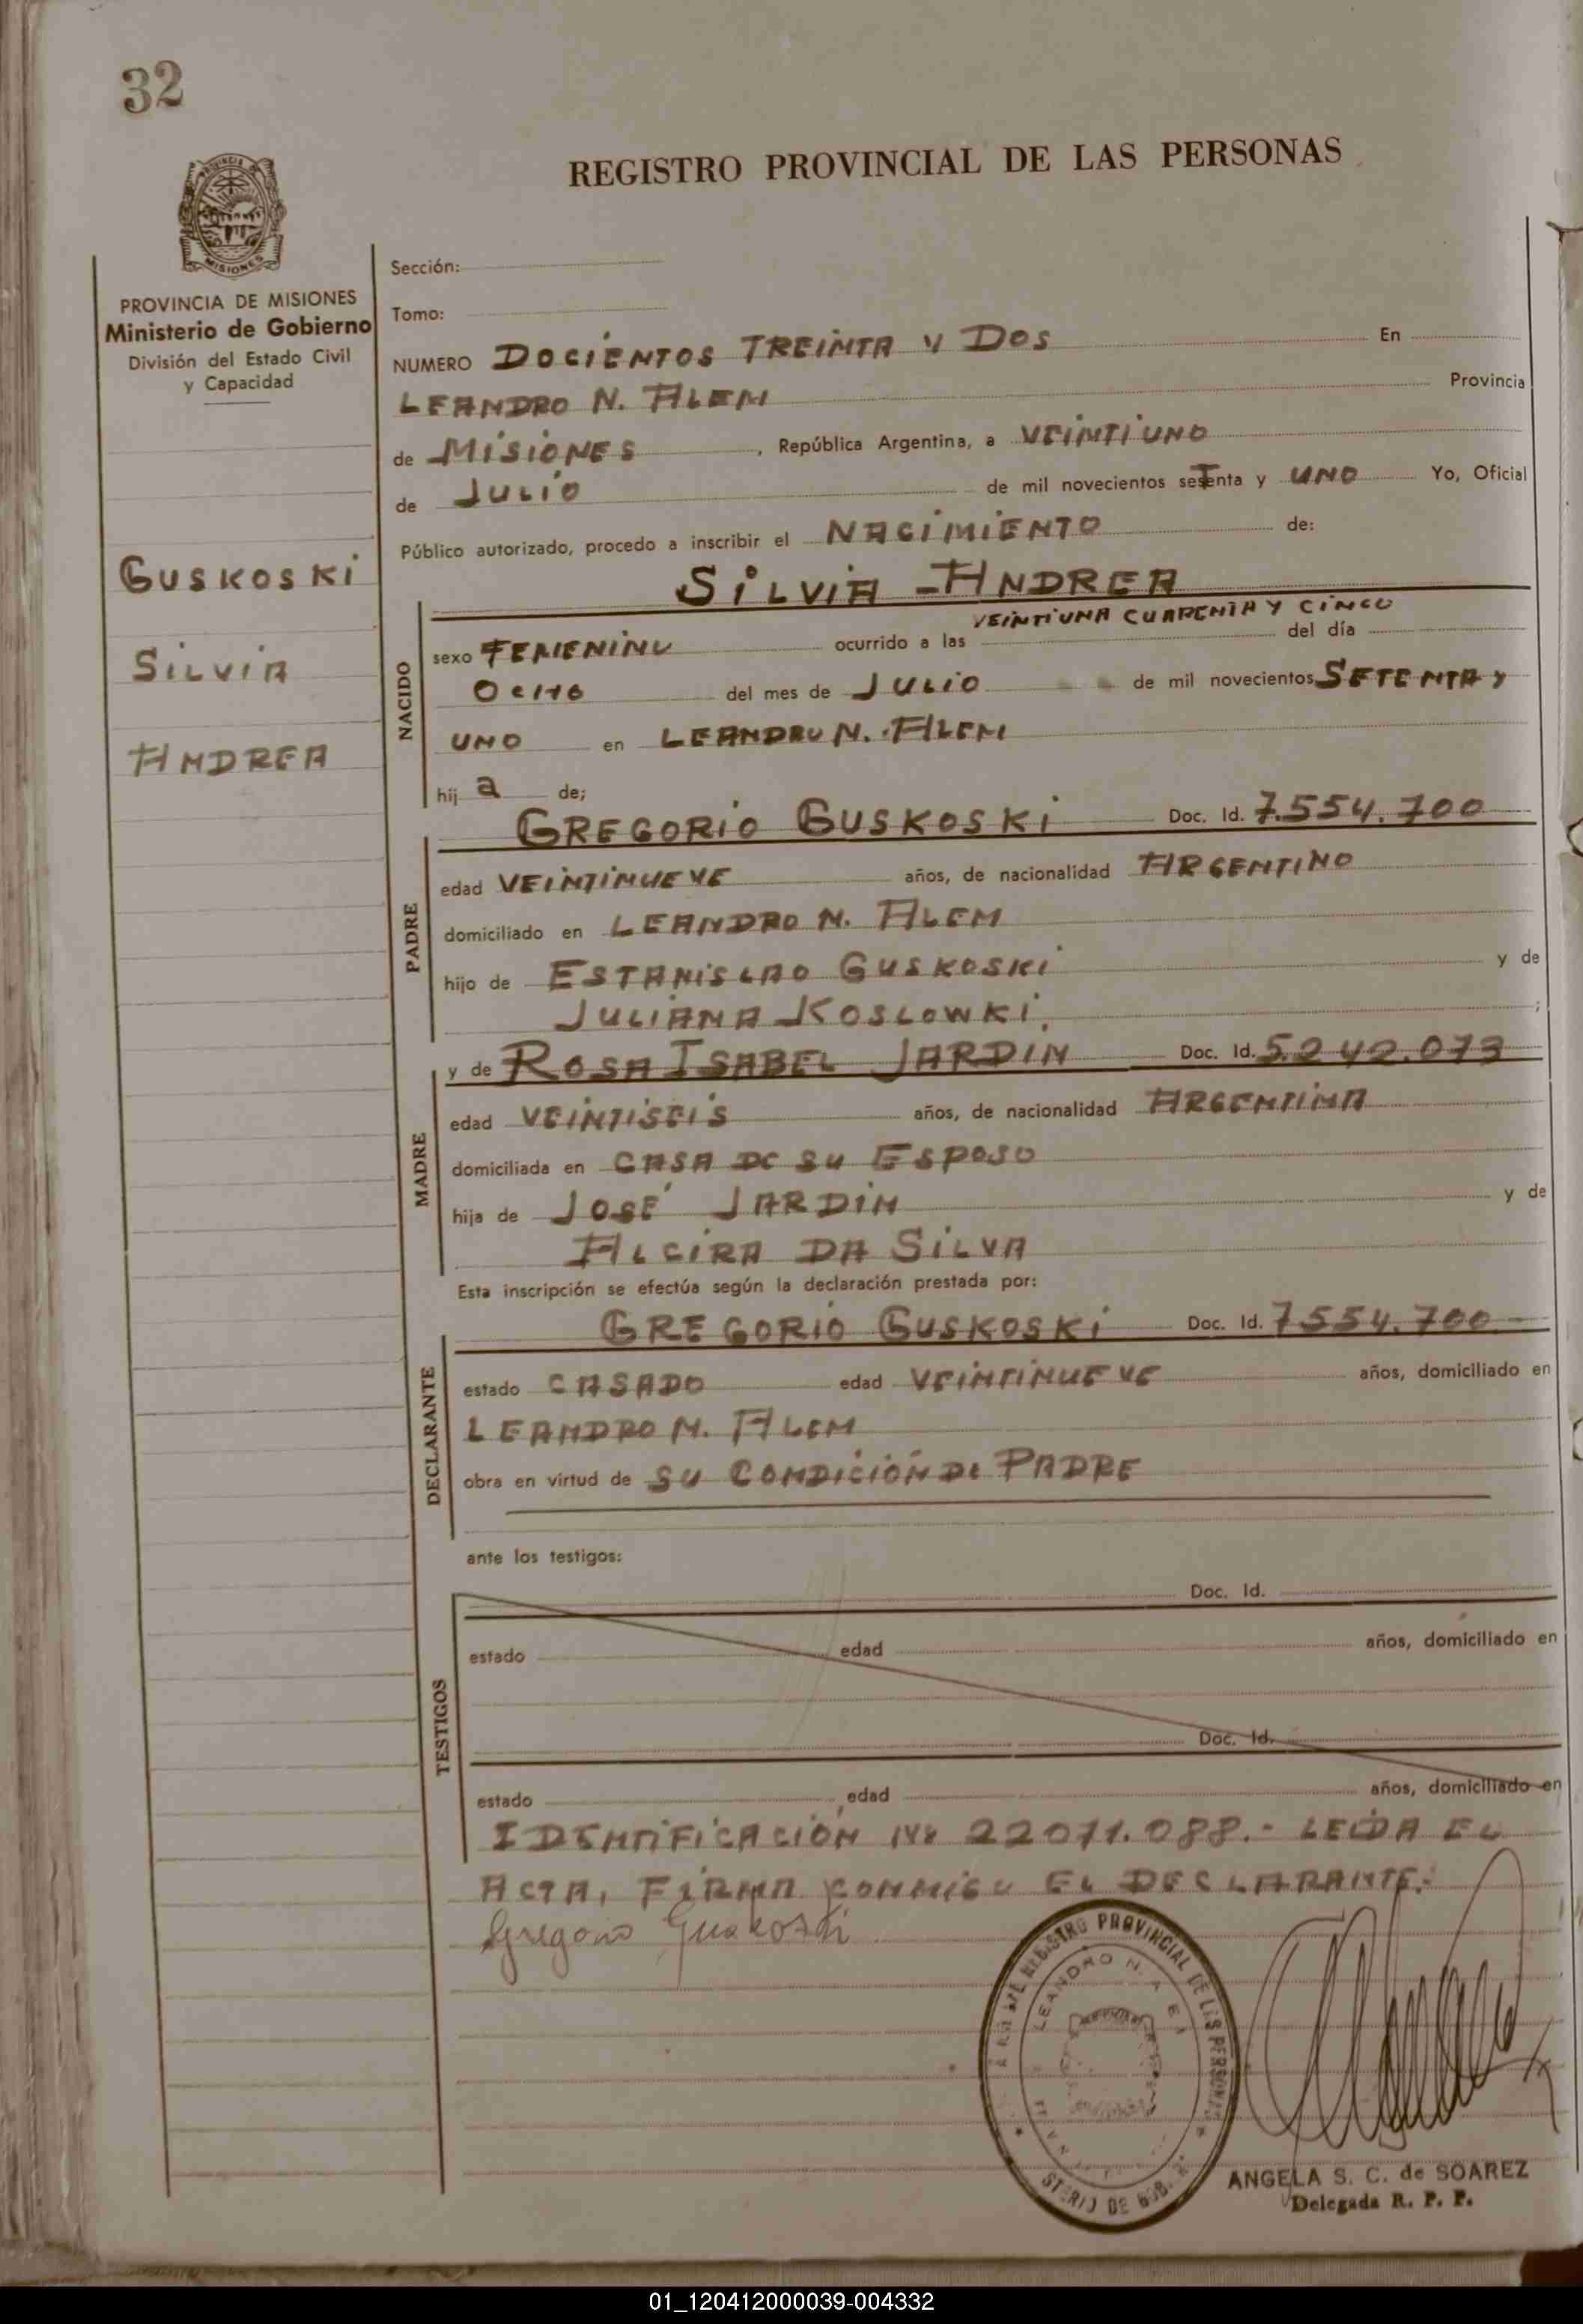 32
REGISTRO PROVINCIAL DE LAS PERSONAS
PROVINCIA DE MISIONES
Ministerio de Gobierno
División del Estado Civil
y Capacidad
GUSKOSKI
SILVIA
ANDREA
Sección:
Tomo:
NUMERO DOCIENTOS TREINTA Y DOS En
LEANDRO N. ALEM Provincia
de MISIONES, República Argentina, a VEINTIUNO
de JULIO de mil novecientos setenta y UNO Yo, Oficial
Público autorizado, procedo a inscribir el NACIMIENTO de:
SILVIA ANDREA
NACIDO
VEINTIUNA CUARENTA Y CINCO
sexo FEMENINO ocurrido a las del día
OCHO del mes de JULIO de mil novecientos SETENTA Y
UNO en LEANDRO N. ALEM
hij a de;
GREGORIO GUSKOSKI Doc. Id. 7.554.700
PADRE
edad VEINTINUEVE años, de nacionalidad ARGENTINO
domiciliado en LEANDRO N. ALEM
hijo de ESTANISLAO GUSKOSKI y de
JULIANA KOSLOWKI. ;
y de ROSA ISABEL JARDIN Doc. Id. 5.242.073
MADRE
edad VEINTISEIS años, de nacionalidad ARGENTINA
domiciliada en CASA DE SU ESPOSO
hija de JOSÉ JARDIN y de
ALCIRA DA SILVA
Esta inscripción se efectúa según la declaración prestada por:
GREGORIO GUSKOSKI Doc. Id. 7554.700
DECLARANTE
estado CASADO edad VEINTINUEVE años, domiciliado en
LEANDRO N. ALEM
obra en virtud de SU CONDICIÓN DE PADRE
ante los testigos:
Doc. Id.
TESTIGOS
estado edad años, domiciliado en
Doc. Id.
estado edad años, domiciliado en
IDENTIFICACIÓN Nº 22071.088.- LEIDA EL
ACTA, FIRMA CONMIGO EL DESCLARANTE.-
Gregorio Guskoski
REGISTRO PROVINCIAL DE LAS PERSONAS
LEANDRO N. ALEM
ANGELA S. C. de SOAREZ
Delegada R. P. P.
01_120412000039-004332